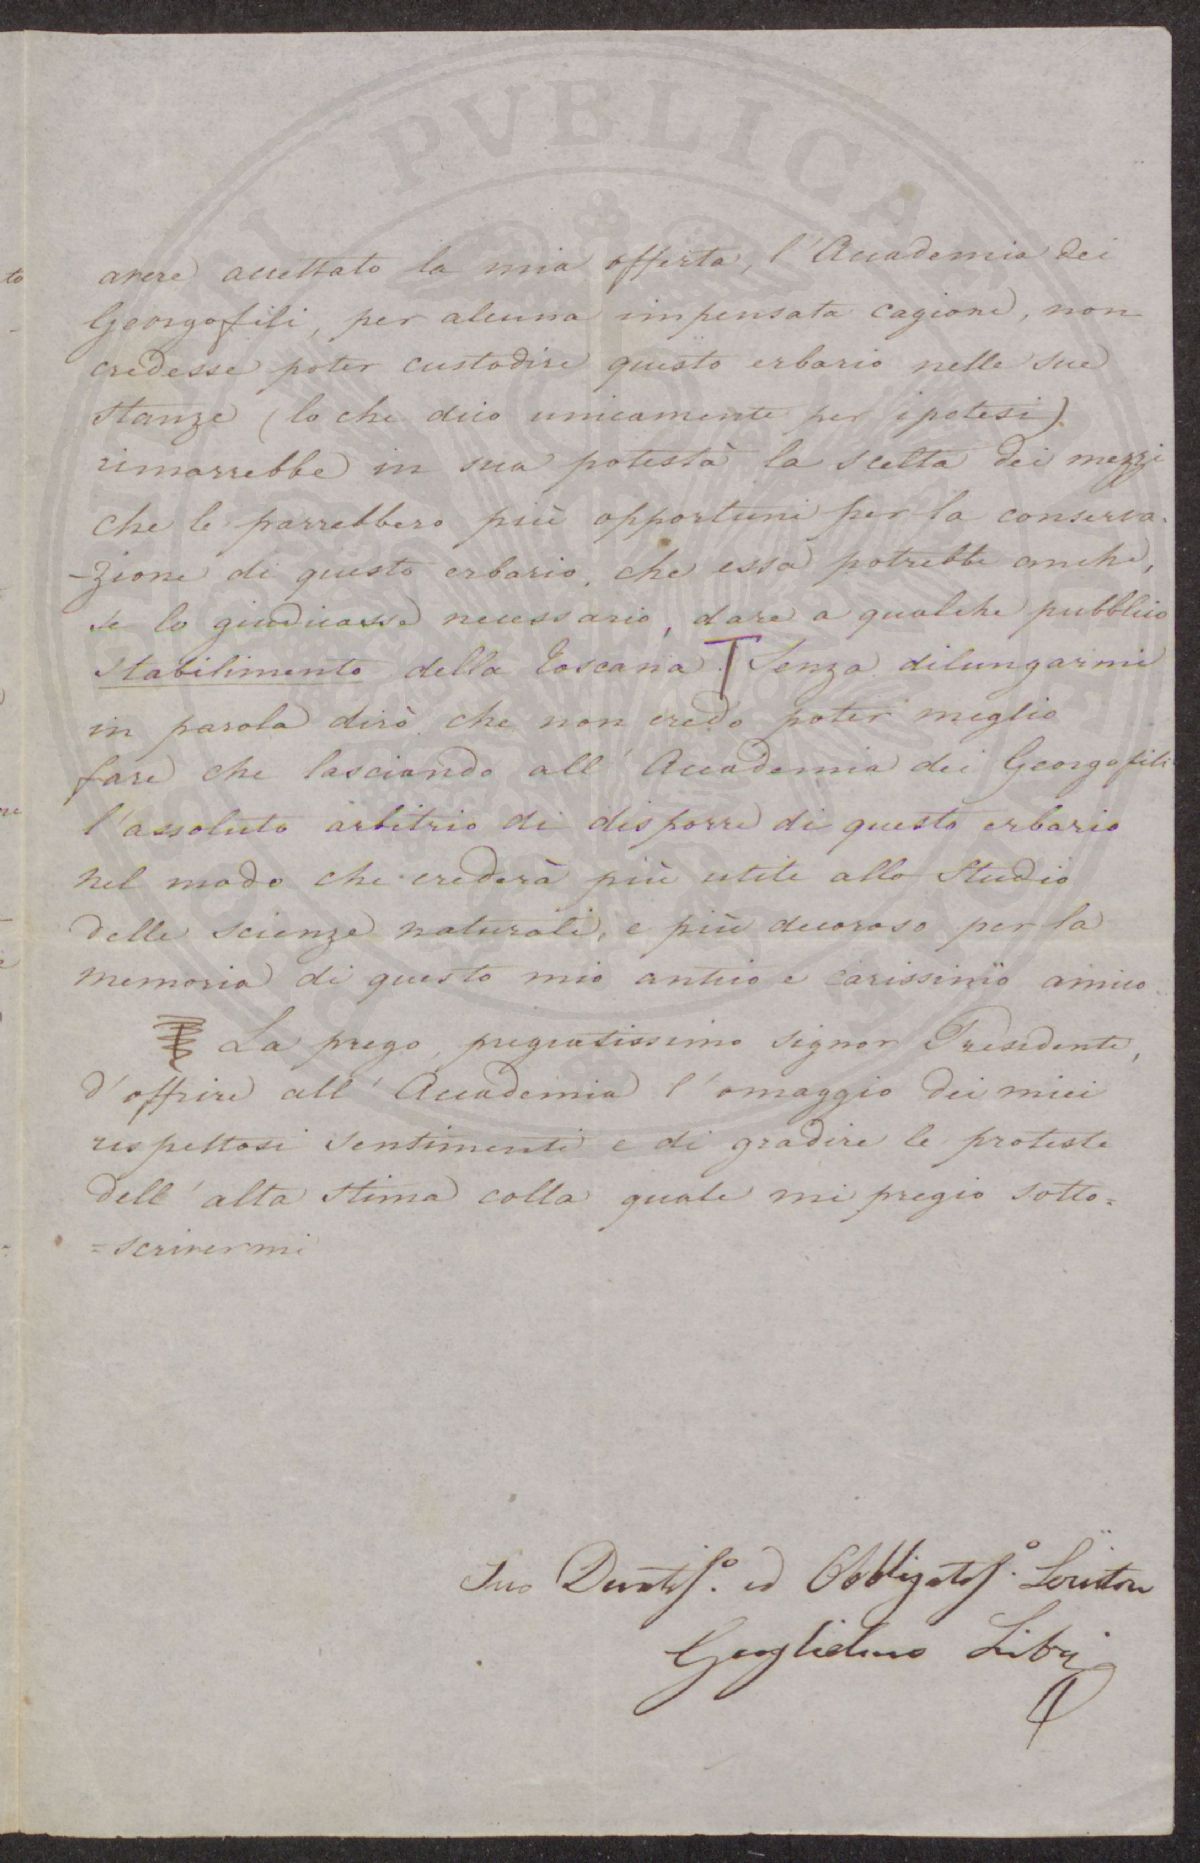 avere accettato la mia offerta, l'Accademia dei
Georgofili, per alcuna impensata cagione, non
credesse poter custodire questo erbario nelle sue
stanze (lo che dico unicamente per ipotesi)
rimarrebbe in sua potestà la scelta dei mezzi
che le parrebbero più opportuni per la conserva-
-zione di questo erbario, che essa potrebbe anche,
se lo giudicasse necessario, dare a qualche pubblico
stabilimento della Toscana. Senza dilungarmi
in parola dirò che non credo poter meglio
fare che lasciando all'Accademia dei Georgofili
l'assoluto arbitrio di disporre di questo erbario
nel modo che crederà più utile allo Studio
delle scienze naturali, e più decoroso per la
memoria di questo mio antico e carissimo amico.
La prego, pregiatissimo signor Presidente,
d'offrire all'Accademia l'omaggio dei miei
rispettosi sentimenti e di gradire le proteste
dell'alta stima colla quale mi pregio sotto=
=scrivermi
Suo Devotiss.o ed Obbligatiss.o Servitore
Guglielmo Libri
PVBLICA